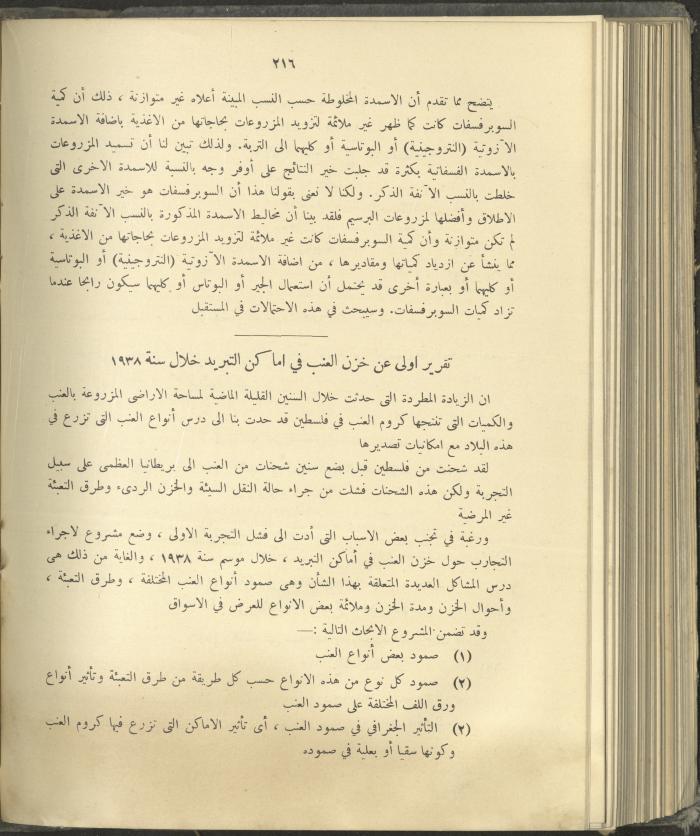 ٢١٦
يتضح مما تقدم أن الاسمدة المخلوطة حسب النسب المبينة أعلاه غير متوازنة ، ذلك أن كمية
السوبرفسفات كانت كما ظهر غير ملائمة لتزويد المزروعات بحاجاتها من الاغذية باضافة الاسمدة
الآزوتية (النتروجينية) أو البوتاسية أو كليهما الى التربة. ولذلك تبين لنا أن تسميد المزروعات
بالاسمدة الفسفاتية بكثرة قد جلبت خير النتائج على أوفر وجه بالنسبة للاسمدة الاخرى التى
خلطت بالنسب الآنفة الذكر. ولكنا لا نعنى بقولنا هذا أن السوبرفسفات هو خير الاسمدة على
الاطلاق وأفضلها لمزروعات البرسيم فلقد بينا أن مخاليط الاسمدة المذكورة بالنسب الآنفة الذكر
لم تكن متوازنة وأن كمية السوبرفسفات كانت غير ملائمة لتزويد المزروعات بحاجاتها من الاغذية ،
مما ينشأ عن ازدياد كمياتها ومقاديرها ، من اضافة الاسمدة الآزوتية (النتروجينية) أو البوتاسية
أو كليهما أو بعبارة أخرى قد يحتمل أن استعمال الجير أو البوتاس أو كليهما سيكون رابحا عندما
تزاد كميات السوبرفسفات. وسيبحث في هذه الاحتمالات في المستقبل
تقرير اولى عن خزن العنب في اماكن التبريد خلال سنة ١٩٣٨
ان الزيادة المطردة التى حدثت خلال السنين القليلة الماضية لمساحة الاراضى المزروعة بالعنب
والكميات التى تنتجها كروم العنب في فلسطين قد حدت بنا الى درس أنواع العنب التى تزرع في
هذه البلاد مع امكانيات تصديرها
لقد شحنت من فلسطين قبل بضع سنين شحنات من العنب الى بريطانيا العظمى على سبيل
التجربة ولكن هذه الشحنات فشلت من جراء حالة النقل السيئة والخزن الردىء وطرق التعبئة
غير المرضية
ورغبة في تجنب بعض الاسباب التى أدت الى فشل التجربة الاولى ، وضع مشروع لاجراء
التجارب حول خزن العنب في أماكن التبريد ، خلال موسم سنة ١٩٣٨ ، والغاية من ذلك هى
درس المشاكل العديدة المتعلقة بهذا الشأن وهى صمود أنواع العنب المختلفة ، وطرق التعبئة ،
وأحوال الخزن ومدة الخزن وملائمة بعض الانواع للعرض في الاسواق
وقد تضمن المشروع الابحاث التالية :—
(١) صمود بعض أنواع العنب
(٢) صمود كل نوع من هذه الانواع حسب كل طريقة من طرق التعبئة وتأثير أنواع
ورق اللف المختلفة على صمود العنب
(٢) التأثير الجغرافي في صمود العنب ، أى تأثير الاماكن التى تزرع فيها كروم العنب
وكونها سقيا أو بعلية في صموده